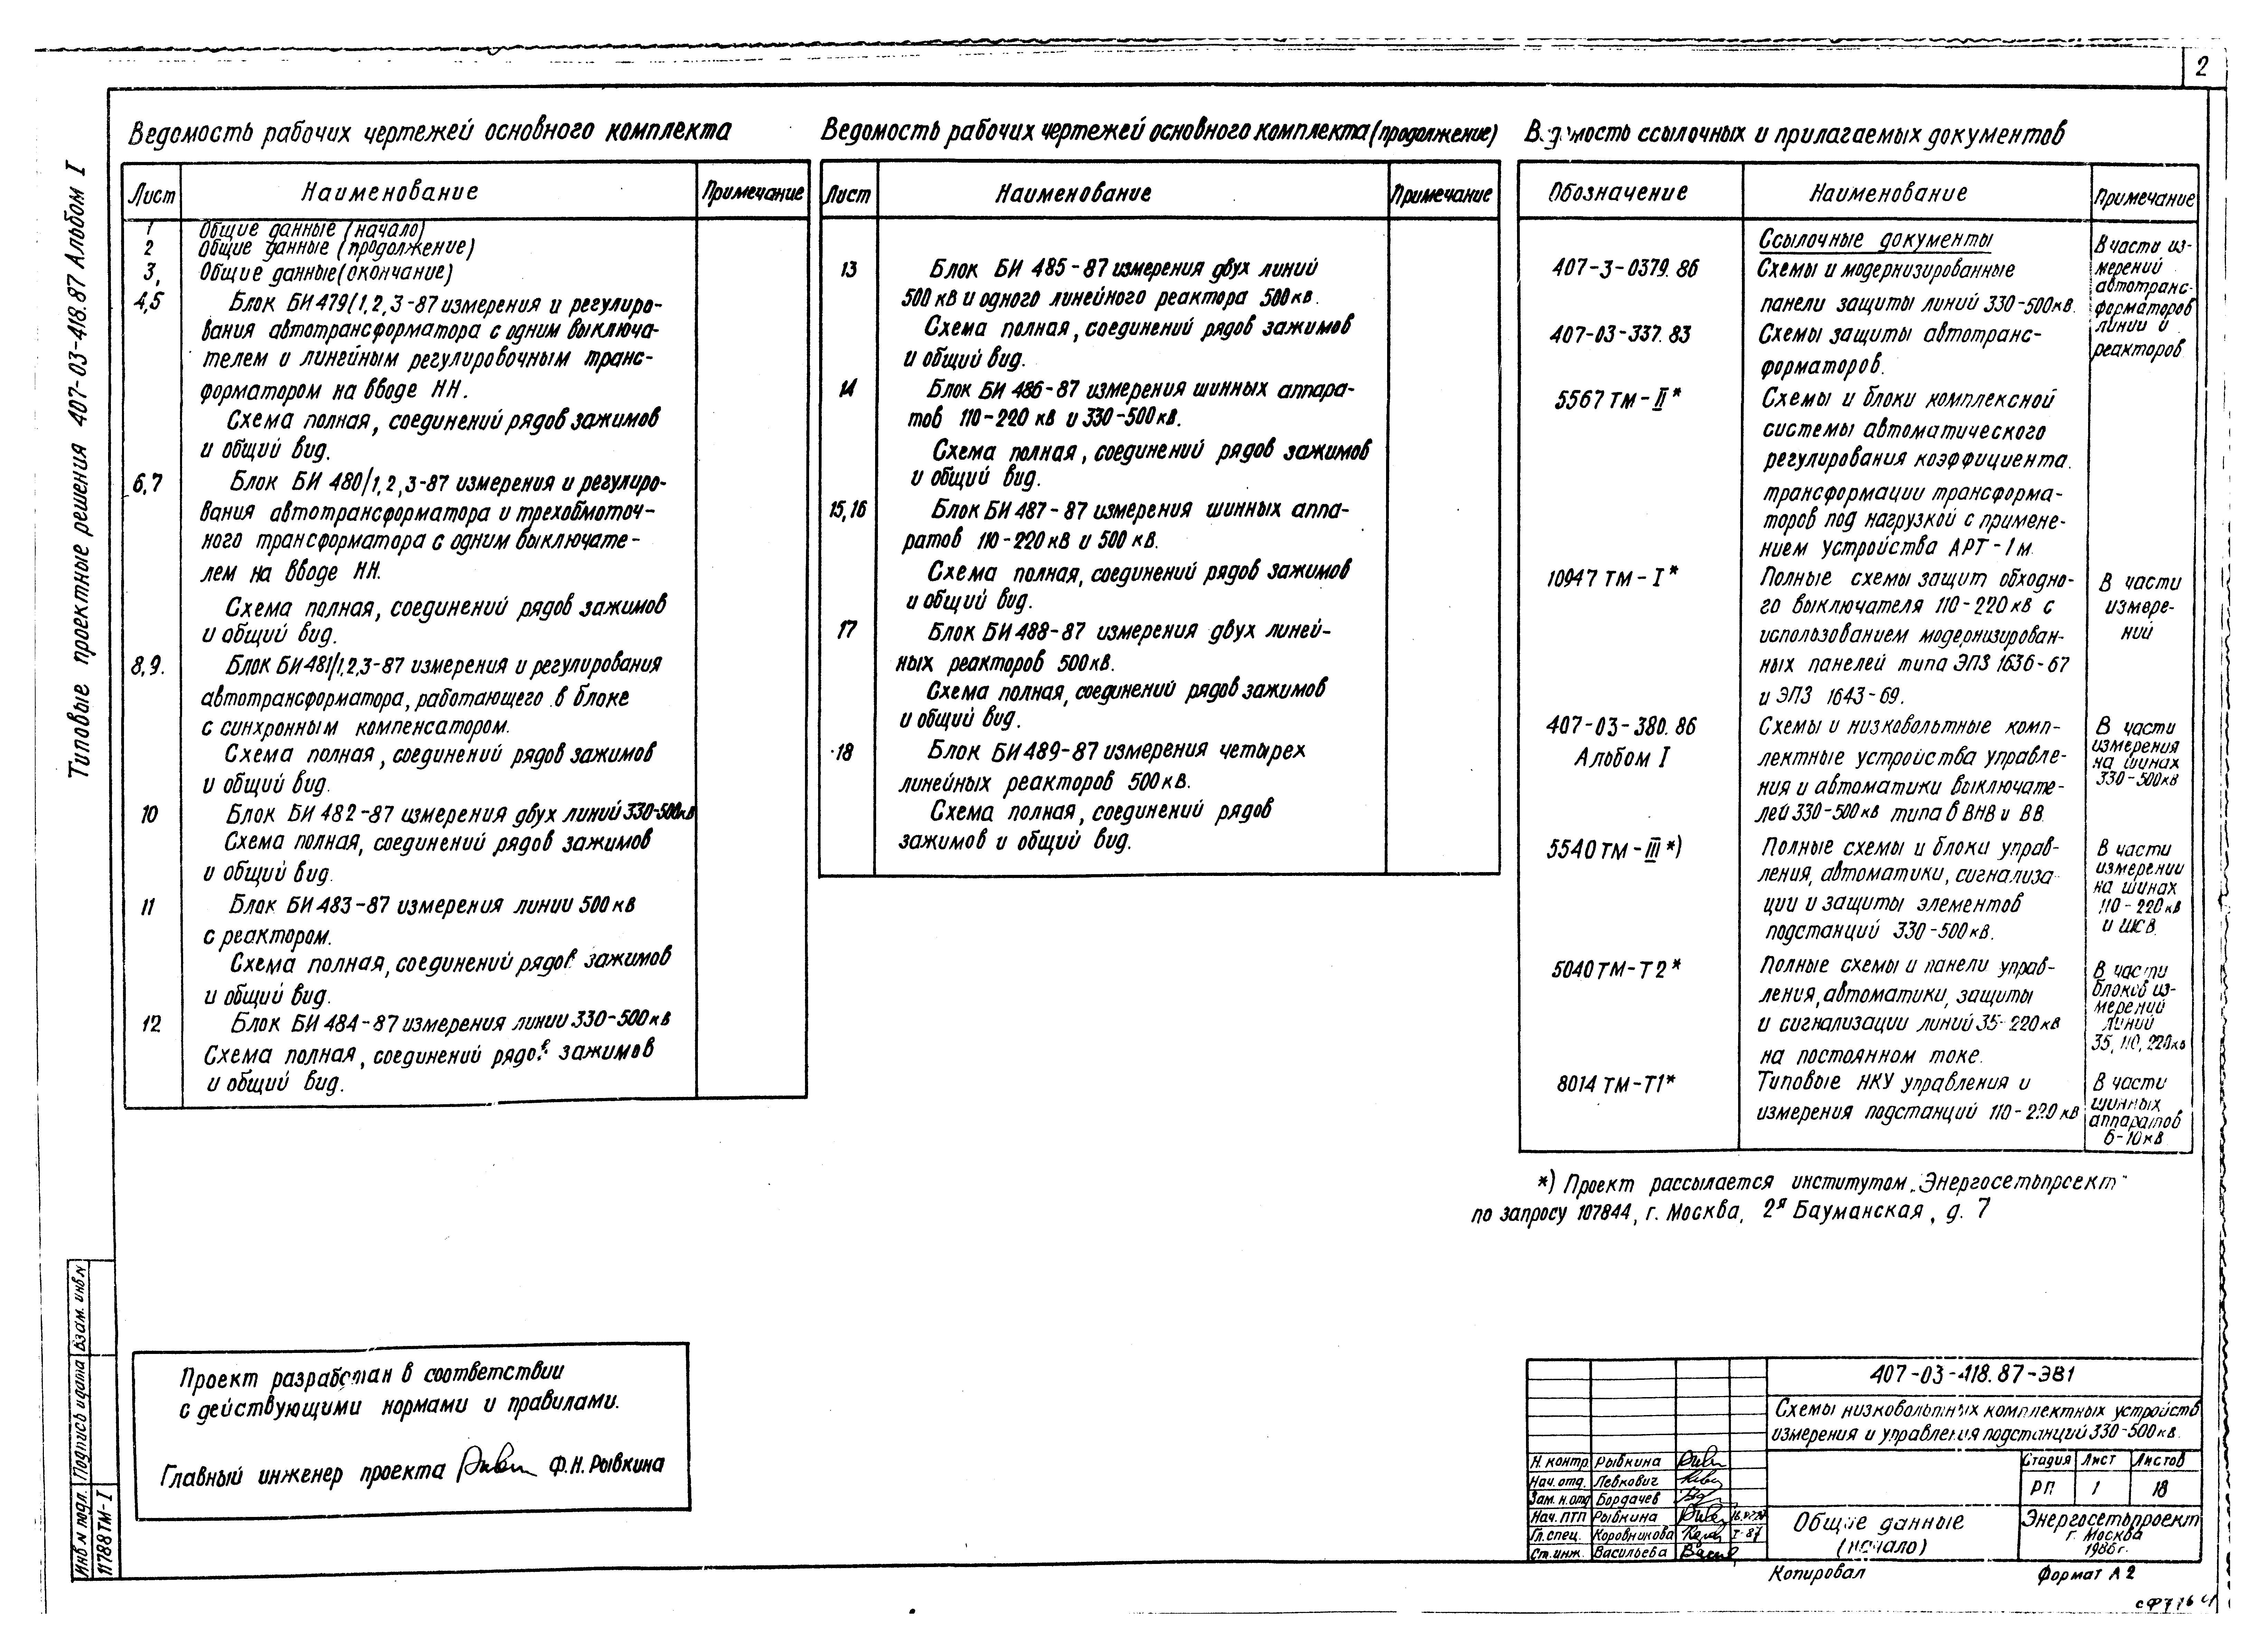 2
Типовые проектные решения 407-03-418.87 Альбом I
Ведомость рабочих чертежей основного комплекта
Лист Наименование Примечание
1 Общие данные (начало)
2 Общие данные (продолжение)
3, Общие данные (окончание)
4,5 Блок БИ 479/1,2,3-87 измерения и регулиро-
вания автотрансформатора с одним выключа-
телем и линейным регулировочным транс-
форматором на вводе НН.
Схема полная, соединений рядов зажимов
и общий вид.
6,7 Блок БИ 480/1,2,3-87 измерения и регулиро-
вания автотрансформатора и трехобмоточ-
ного трансформатора с одним выключате-
лем на вводе НН.
Схема полная, соединений рядов зажимов
и общий вид.
8,9. Блок БИ 481/1,2,3-87 измерения и регулирования
автотрансформатора, работающего в блоке
с синхронным компенсатором.
Схема полная, соединений рядов зажимов
и общий вид.
10 Блок БИ 482-87 измерения двух линий 330-500кв
Схема полная, соединений рядов зажимов
и общий вид.
11 Блок БИ 483-87 измерения линии 500 кв
с реактором.
Схема полная, соединений рядов зажимов
и общий вид.
12 Блок БИ 484-87 измерения линии 330-500 кв
Схема полная, соединений рядов зажимов
и общий вид.
Ведомость рабочих чертежей основного комплекта (продолжение)
Лист Наименование Примечание
13 Блок БИ 485-87 измерения двух линий
500 кв и одного линейного реактора 500 кв.
Схема полная, соединений рядов зажимов
и общий вид.
14 Блок БИ 486-87 измерения шинных аппара-
тов 110-220 кв и 330-500 кв.
Схема полная, соединений рядов зажимов
и общий вид.
15,16 Блок БИ 487-87 измерения шинных аппа-
ратов 110-220 кв и 500 кв.
Схема полная, соединений рядов зажимов
и общий вид.
17 Блок БИ 488-87 измерения двух линей-
ных реакторов 500 кв.
Схема полная, соединений рядов зажимов
и общий вид.
18 Блок БИ 489-87 измерения четырех
линейных реакторов 500 кв.
Схема полная, соединений рядов
зажимов и общий вид.
Ведомость ссылочных и прилагаемых документов
Обозначение Наименование Примечание
Ссылочные документы
407-3-0379.86 Схемы и модернизированные
панели защиты линий 330-500 кв.
В части из-
мерений
автотранс-
форматоров
линии и
реакторов
407-03-337.83 Схемы защиты автотранс-
форматоров.
5567 ТМ-II* Схемы и блоки комплексной
системы автоматического
регулирования коэффициента.
трансформации трансформа-
торов под нагрузкой с примене-
нием устройства АРТ-1м.
10947 ТМ-I* Полные схемы защит обходно-
го выключателя 110-220 кв с
использованием модернизирован-
ных панелей типа ЭПЗ 1636-67
и ЭПЗ 1643-69.
В части
измере-
ний
407-03-380.86
Альбом I
Схемы и низковольтные комп-
лектные устройства управле-
ния и автоматики выключате-
лей 330-500 кв типа в ВНВ и ВВ.
В части
измерения
на шинах
330-500кв
5540 ТМ-III*) Полные схемы и блоки управ-
ления, автоматики, сигнализа
ции и защиты элементов
подстанций 330-500 кв.
В части
измерении
на шинах
110-220 кв
и ШСВ.
5040 ТМ-Т2* Полные схемы и панели управ-
ления, автоматики, защиты
и сигнализации линий 35-220 кв
на постоянном токе.
В части
блоков из-
мерений
линий
35, 110, 220кв
8014 ТМ-Т1* Типовые НКУ управления и
измерения подстанций 110-220 кв
В части
шинных
аппаратов
6-10 кв
*) Проект рассылается институтом „Энергосетьпроект"
по запросу 107844, г. Москва, 2я Бауманская, д. 7
Проект разработан в соответствии
с действующими нормами и правилами.
Главный инженер проекта Ф.Н. Рывкина
Взам. инв.N
Подпись и дата
Инв N подл.
11788ТМ-I
407-03-418.87-ЭВ1
Схемы низковольтных комплектных устройств
измерения и управления подстанций 330-500 кв.
Н. контр. Рывкина
Нач. отд. Левкович
Зам. н. отд Бордачев
Нач. ПТП Рывкина
Гл. спец. Коровникова I-87
Ст. инж. Васильева
Стадия Лист Листов
РП 1 18
Общие данные
(начало)
Энергосетьпроект
г. Москва
1986 г.
Копировал Формат А2